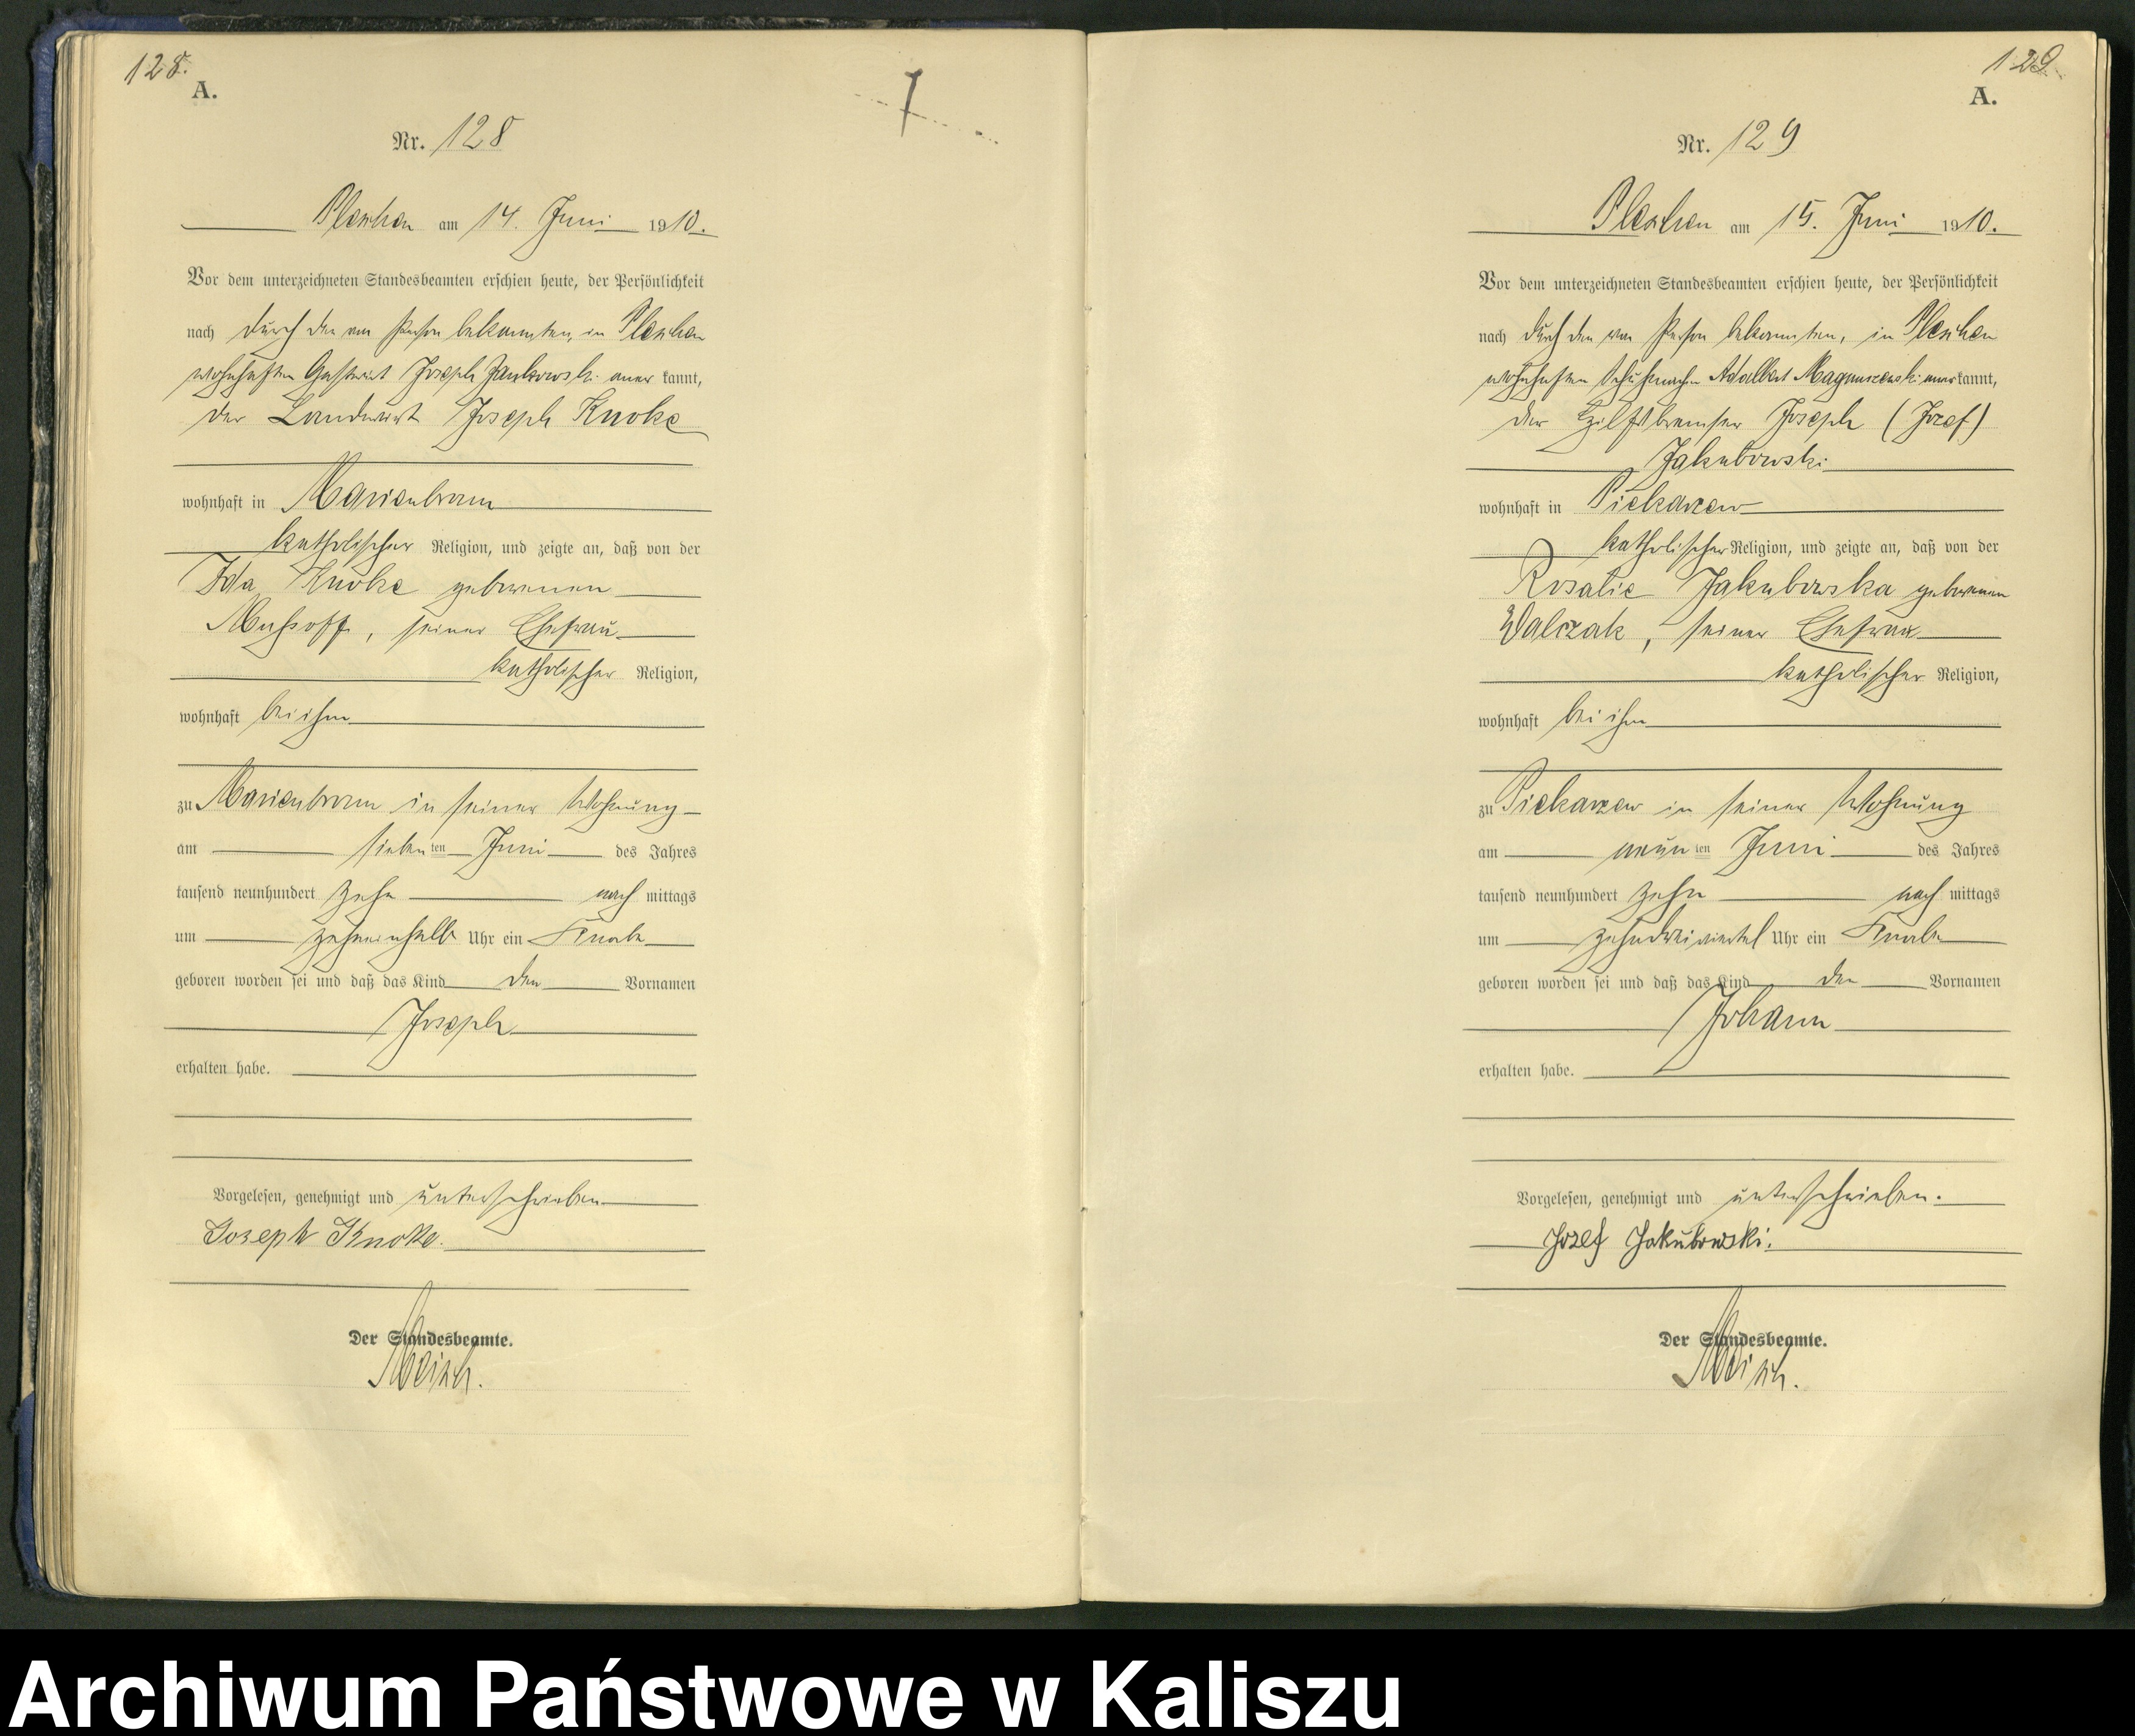 128.
A.
Nr. 128
Pleschen am 14. Juni 1910.
Vor dem unterzeichneten Standesbeamten erschien heute, der Persönlichkeit
nach durch den von Person bekannten, in Pleschen
wohnhaften Gastwirt Joseph Jankowski aner kannt,
der Landwirt Joseph Knoke
wohnhaft in Marienbronn
katholischer Religion, und zeigte an, daß von der
Ida Knoke geborenen
seiner Ehefrau
katholischer Religion,
wohnhaft bei ihm
zu Marienbronn in seiner Wohnung
am sieben ten Juni des Jahres
tausend neunhundert zehn nach mittags
um zehneinhalb Uhr ein Knabe
geboren worden sei und daß das Kind den Vornamen
Joseph
erhalten habe.
Vorgelesen, genehmigt und unterschrieben
Joseph Knoke.
Der Standesbeamte.
129
A.
Nr. 129
Pleschen am 15. Juni 1910.
Vor dem unterzeichneten Standesbeamten erschien heute, der Persönlichkeit
nach durch den von Person bekannten, in Pleschen
wohnhaften Schuhmacher Adalbert Magnuszewski aner kannt,
der Hilfsbremser Joseph (Jozef)
Jakubowski
wohnhaft in Piekarzew
katholischer Religion, und zeigte an, daß von der
Rosalie Jakubowska geborenen
Walczak, seiner Ehefrau
katholischer Religion,
wohnhaft bei ihm
zu Piekarzew in seiner Wohnung
am neun ten Juni des Jahres
tausend neunhundert zehn nach mittags
um zehndreiviertel Uhr ein Knabe
geboren worden sei und daß das Kind den Vornamen
Johann
erhalten habe.
Vorgelesen, genehmigt und unterschrieben.
Jozef Jakubowski.
Der Standesbeamte.
Archiwum Państwowe w Kaliszu